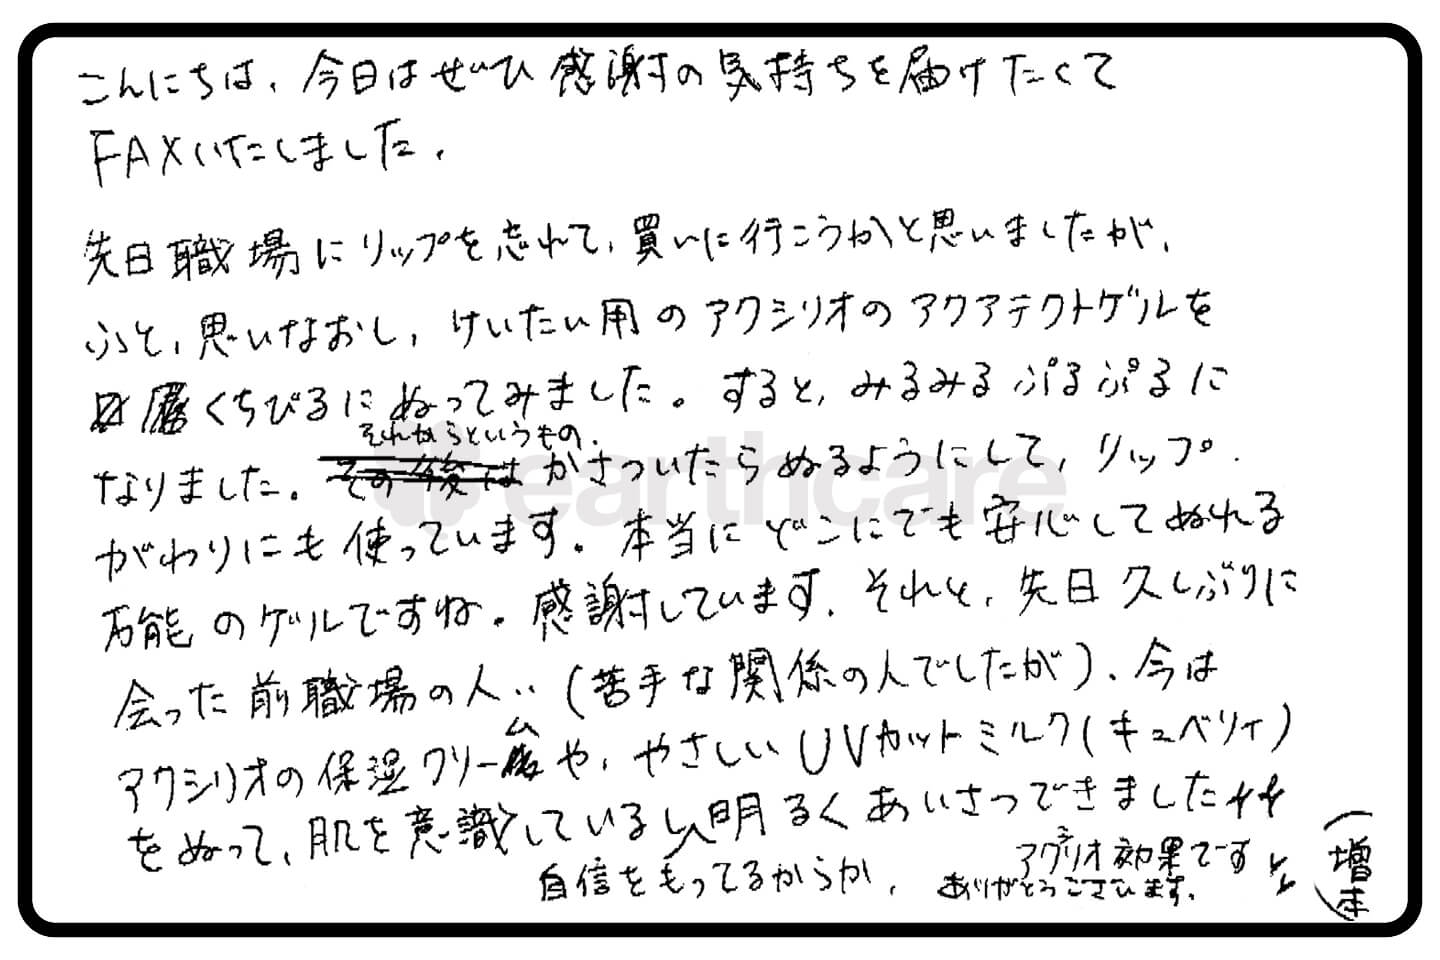 こんにちは、今日はぜひ感謝の気持ちを届けたくて
FAXいたしました。
先日職場にリップを忘れて、買いに行こうかと思いましたが、
ふと、思いなおし、けいたい用のアクシリオのアクアテクトゲルを
くちびるにぬってみました。すると、みるみるぷるぷるに
それからというもの、
なりました。その後は かさついたらぬるようにして、リップ
がわりにも使っています。本当にどこにでも安心してぬれる
万能のゲルですね。感謝しています。それと、先日久しぶりに
会った前職場の人‥(苦手な関係の人でしたが)、今は
アクシリオの保湿クリームや、やさしいUVカットミルク(キュベリィ)
をぬって、肌を意識しているし、明るくあいさつできました
自信をもってるからか、
アクシリオ効果です
ありがとうございます。
(増本)
earthcare